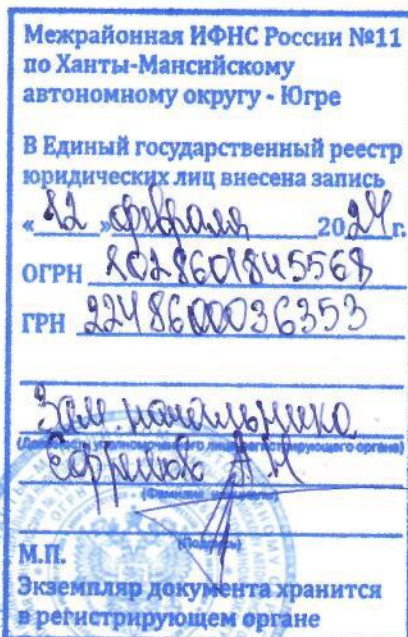 Межрайонная ИФНС России №11
по Ханты-Мансийскому
автономному округу - Югре
В Единый государственный реестр
юридических лиц внесена запись
«12» февраля 2024 г.
ОГРН 1028601845568
ГРН 2248600036353
Зам. начальника
(Должность уполномоченного лица регистрирующего органа)
А.Н
(Фамилия, инициалы)
(Подпись)
М.П.
Экземпляр документа хранится
в регистрирующем органе